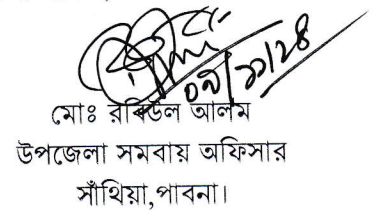 ০৯/১১/২৪
মোঃ রবিউল আলম
উপজেলা সমবায় অফিসার
সাঁথিয়া,পাবনা।